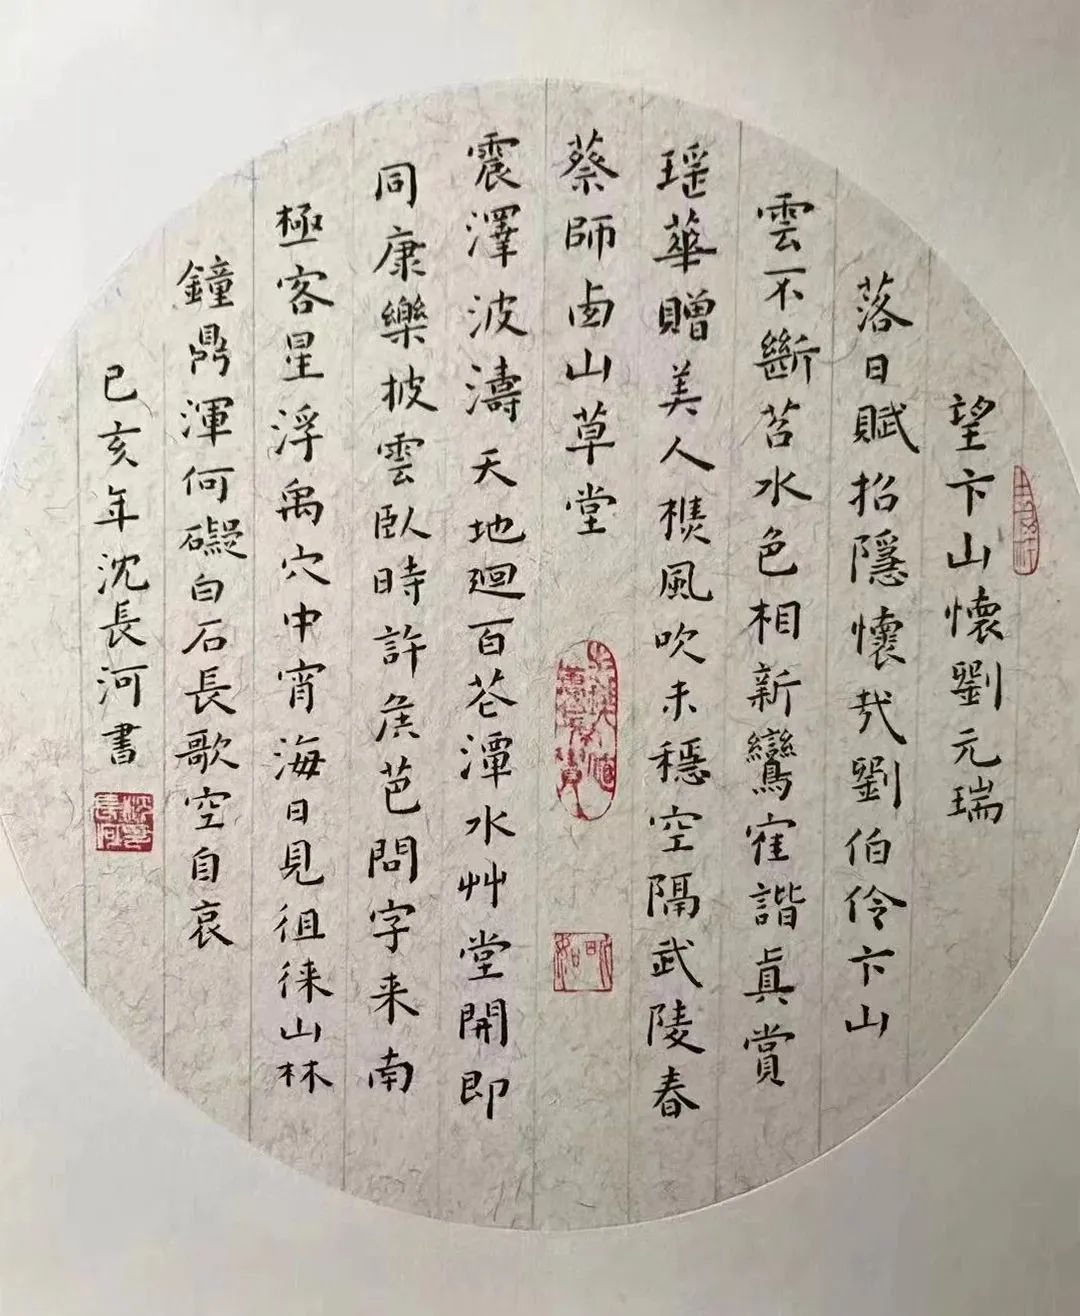 望卞山懷劉元瑞
落日賦招隱懷哉劉伯伶卞山
雲不斷苕水色相新鸞寉諧眞賞
瑶華贈美人樵風吹未穩空隔武陵春
蔡師卣山草堂
震澤波濤天地迴百花潭水艸堂開即
同康樂披雲臥時許侯芭問字来南
極客星浮禹穴中宵海日見徂徠山林
鐘鼎渾何礙白石長歌空自哀
已亥年沈長河書
沈長河